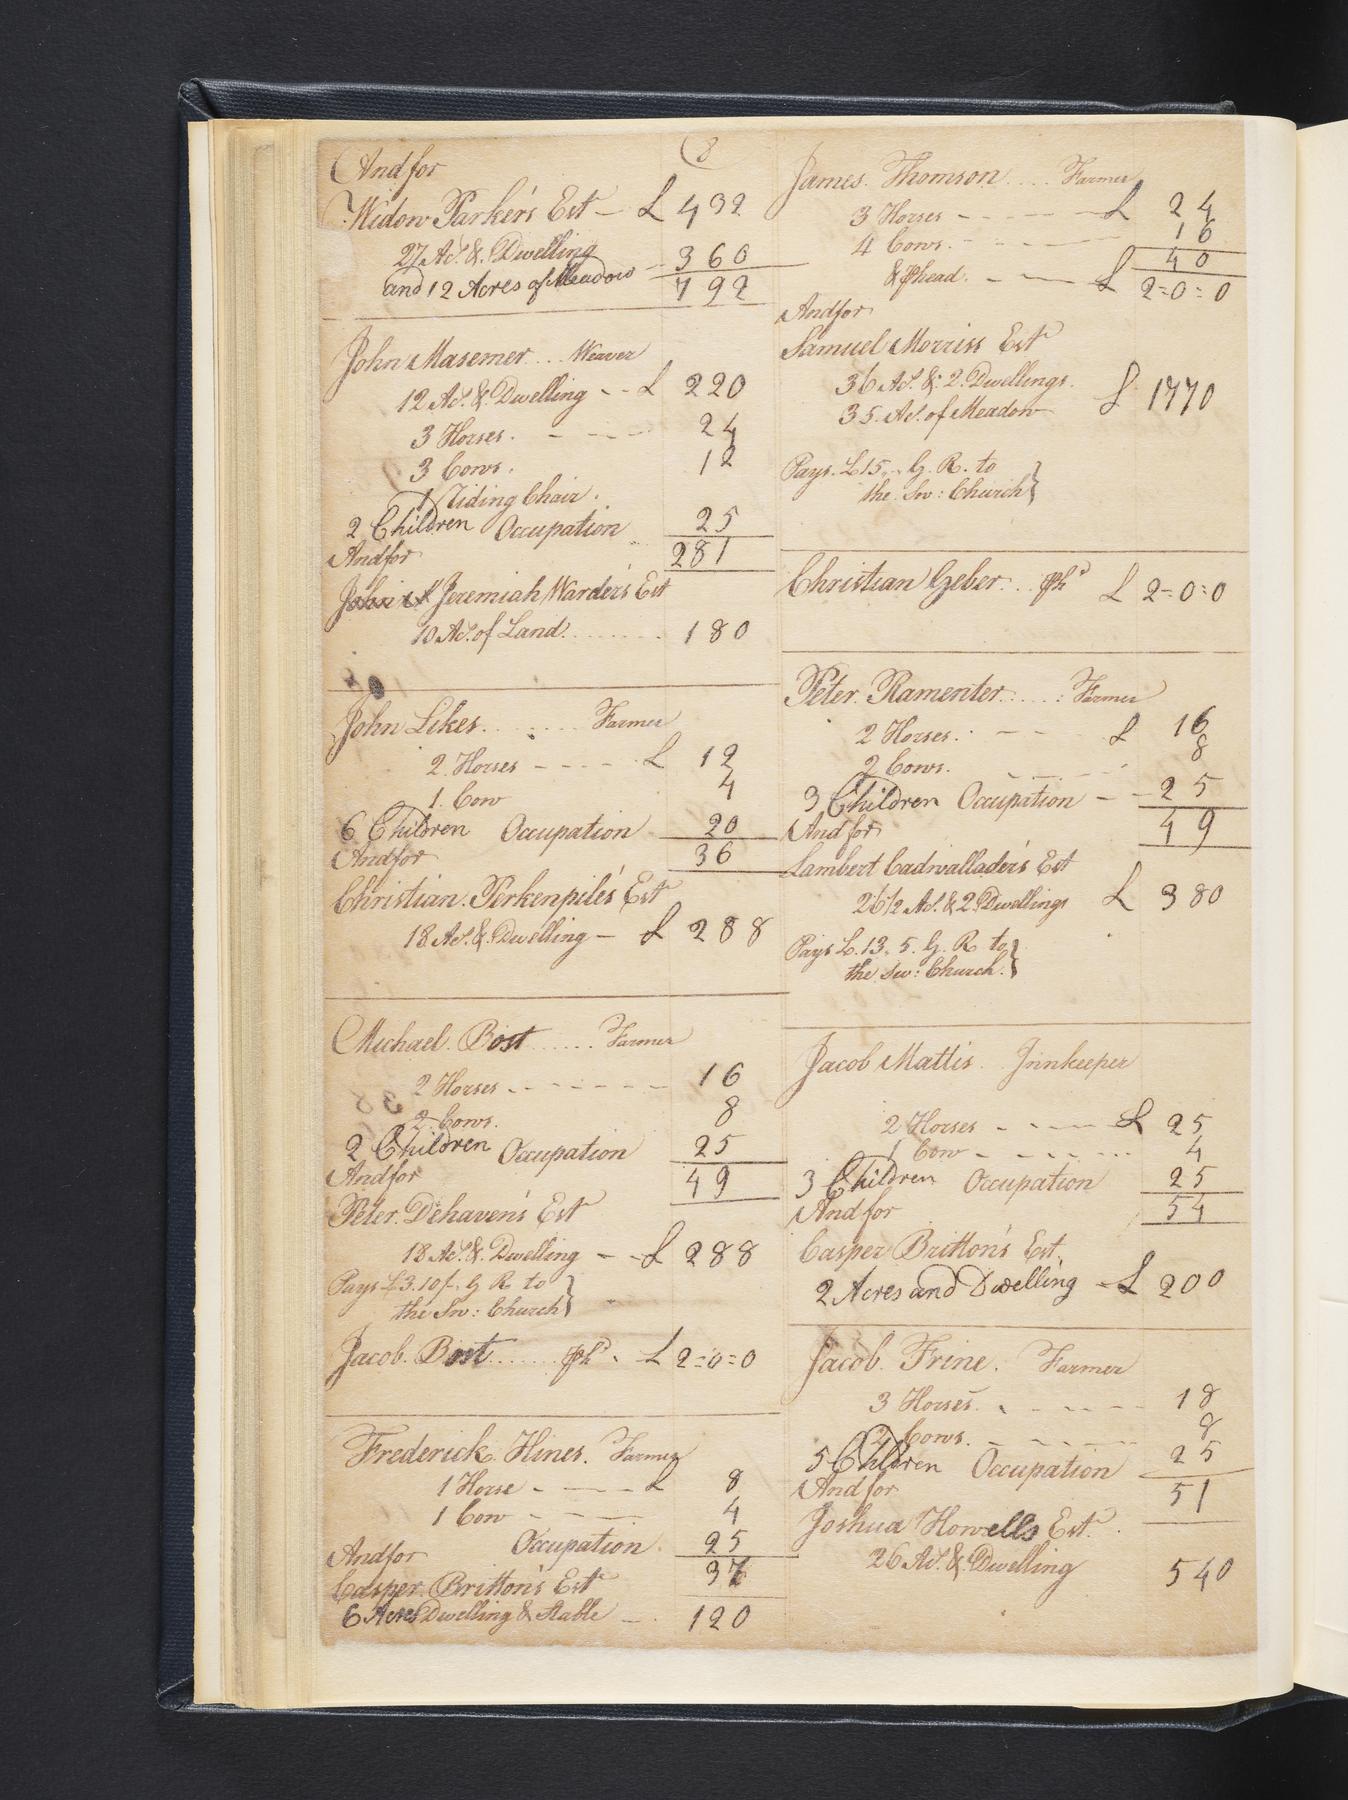 (8
And for
Widow Parker's Est - £ 432
27 Ac.s & Dwelling
and 12 Acres of Meadow - 360
792
John Masemer... Weaver
12 Ac.s & Dwelling - - £ 220
3 Horses. - - - 24
3 Cows. 12
1 Riding Chair.
2 Children Occupation 25
And for 281
John & Jeremiah Warder's Est
10 Ac.s of Land........ 180
John Likes....... Farmer
2 Horses - - - - £ 12
1 Cow 4
6 Children Occupation 20
And for 36
Christian Perkenpile's Est
18 Ac.s & Dwelling - £ 288
Michael Bost...... Farmer
2 Horses - - - - - - 16
2 Cows. 8
2 Children Occupation 25
And for 49
Peter Dehaven's Est
18 Ac.s & Dwelling - - £ 288
Pays £3.10/- G R to
the Sw: Church}
Jacob Bost....... ph.d - £ 2=0=0
Frederick Hines. Farmer
1 Horse - - - £ 8
1 Cow - - - 4
Occupation 25
And for 37
Casper Britton's Est
6 Acres Dwelling & Stable - 120
James Thomson.... Farmer
3 Horses - - - - - £ 24
4 Cows. - - - - - 16
40
& phead. - - £ 2=0=0
And for
Samuel Morriss Est
36 Ac.s & 2 Dwellings.
35 Ac.s of Meadow £ 1770
Pays £15,- G. R. to
the Sw: Church}
Christian Geber... ph.d £ 2=0=0
Peter Ramenter..... Farmer
2 Horses. - - - £ 16
2 Cows. - - - 8
3 Children Occupation - - 25
And for 49
Lambert Cadwallader's Est
26 1/2 Ac.s & 2 Dwellings £ 380
Pays £.13.5. G. R to
the Sw: Church.}
Jacob Mattis. Innkeeper
2 Horses - - - £ 25
1 Cow - - - - 4
3 Children Occupation 25
And for 54
Casper Britton's Est.
2 Acres and Dwelling - £ 200
Jacob Frine. Farmer
3 Horses. - - - - 18
2 Cows. - - - - 8
5 Children Occupation 25
And for 51
Joshua Howells Est.
26 Ac.s & Dwelling 540